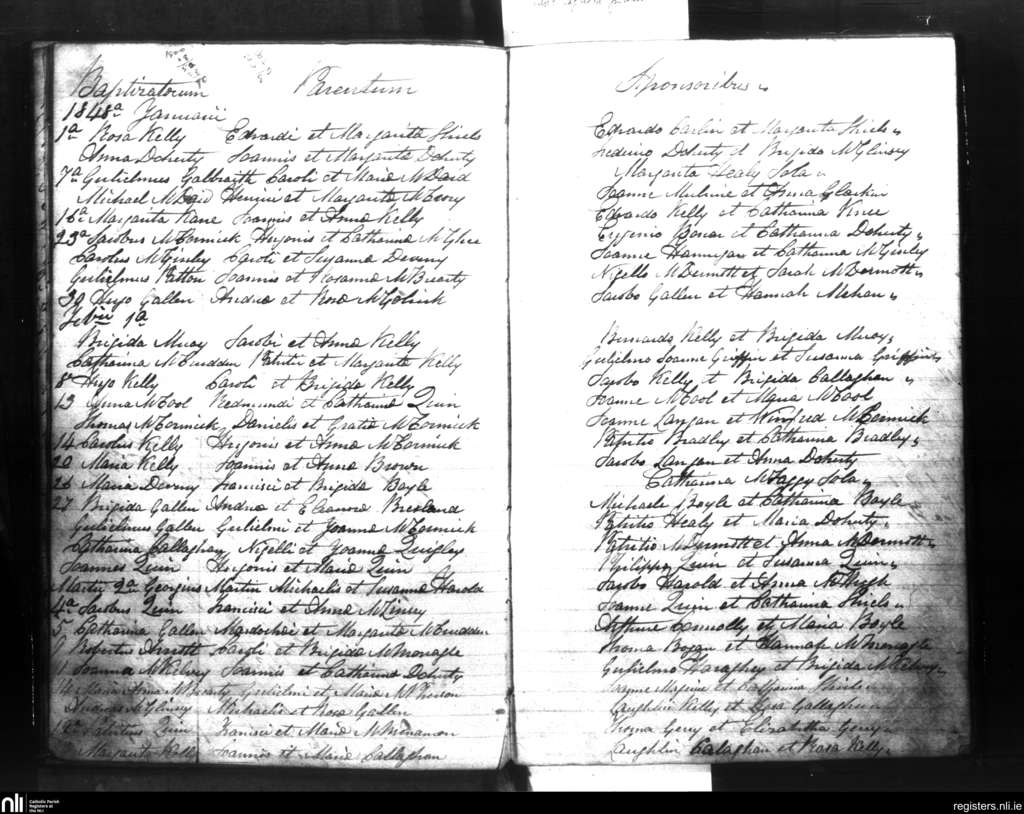 Baptizatorum Parentum Sponsoribus
1848a Januarii
1a Rosa Kelly Edvardi et Margarita Shiels Edvardo Carlin et Margarita Shiels
Anna Doherty Joannis et Margarita Doherty Doherty et Brigida McGlinsey
7a Gulielmus Galbraith Caroli et Maria McDaid Margarita Healy Sola
Michael McDaid Henrici et Margarita Joanne et Anna
16a Margarita Kane Joannis et Anna Kelly Edvardo Kelly et Catharina
23a Jacobus McCormick Hugonis et Catharina McGhee Eugenio Bonar et Catharina Doherty
Carolus McGinley Caroli et Susanna Deveny Joanne Hannigan et Catharina McGinley
Gulielmus Patton Joannis et Rosanna McBrearty Nigello McDermott et Sarah McDermott
30 Hugo Gallen Andrea et Rosa Jacobo Gallen et Hannah Mehan
Febrii 1a
Brigida Jacobi et Anna Kelly Bernardo Kelly et Brigida
Catharina McCrudden Patritii et Margarita Kelly Gulielmo Joanne Griffin et Susanna Griffin
8a Hugo Kelly Caroli et Brigida Kelly Jacobo Kelly et Brigida Callaghan
13 Anna McCool Redmundi et Catharina Quin Joanne McCool et McCool
Thomas McCormick Danielis et Gratia McCormick Joanne Langan et Winifred McCormick
14 Carolus Kelly Hugonis et Anna McCormick Patritio Bradley et Catharina Bradley
20 Maria Kelly Joannis et Anna Brown Jacobo Langan et Anna Doherty
26 Maria Deveny Francisci et Brigida Boyle Catharina Sola
27 Brigida Gallen Andrea et Eleanora Bresland Michaele Boyle et Catharina Boyle
Gulielmus Gallen Gulielmi et Joanna McCormick Patritio Healy et Maria Doherty
Catharina Callaghan Nigelli et Joanna Quigley Patritio McDermott et Anna McDermott
Joannes Quin Hugonis et Maria Quin Philippo Quin et Susanna Quin
Martii 2a Georgius Martin Michaelis et Susanna Harold Jacobo Harold et Anna McHugh
4a Jacobus Quin Francisci et Anna Joanne Quin et Catharina Shiels
5 Catharina Gallen Mardochei et Margarita McCrudden Arthure Connolly et Maria Boyle
9 Robertus Arnott Caroli et Brigida McMonagle Thoma Bogan et Hannah McMonagle
11 Joanna McKelvey Joannis et Catharina Doherty Gulielmo Haraghey et Brigida McKelvey
14 Maria Anna McBrearty Gulielmi et Maria Joanne et Catharina Shiels
McGlinsey Michaelis et Rosa Gallen Laughlin Kelly et Rosa Gallagher
Patritius Quin Francisci et Maria McMenamon Thoma Gerry et Elizabetha Gerry
Margarita Kelly Joannis et Maria Callaghan Laughlin Calaghan et Rosa Kelly
nli Catholic Parish Registers at the NLI
registers.nli.ie